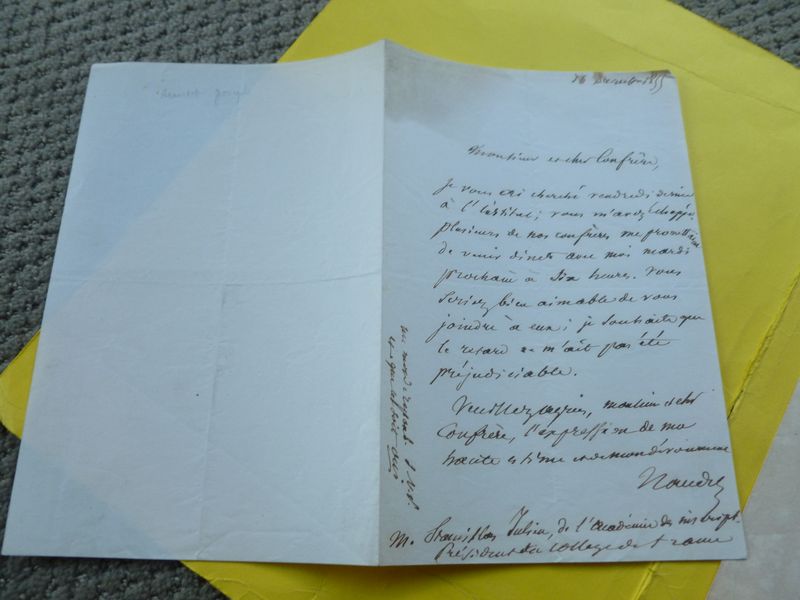 Décembre 1855
Monsieur et cher Confrère,
Je vous ai cherché vendredi dernier
à l'institut; vous m'avez échappé.
plusieurs de nos confrères me promettent
de venir diner avec moi mardi
prochain à six heures. vous
seriez bien aimable de vous
joindre à eux; je souhaite que
le retard ne m'ait pas été
préjudiciable.
Veuillez agréer, monsieur et cher
Confrère, l'expression de ma
haute estime et de mon dévouement
Naudet
M. Stanislas Julien, de l'Académie des inscript.
Président du collège de france
un mot réponse s.v.p.
et que ce soit oui